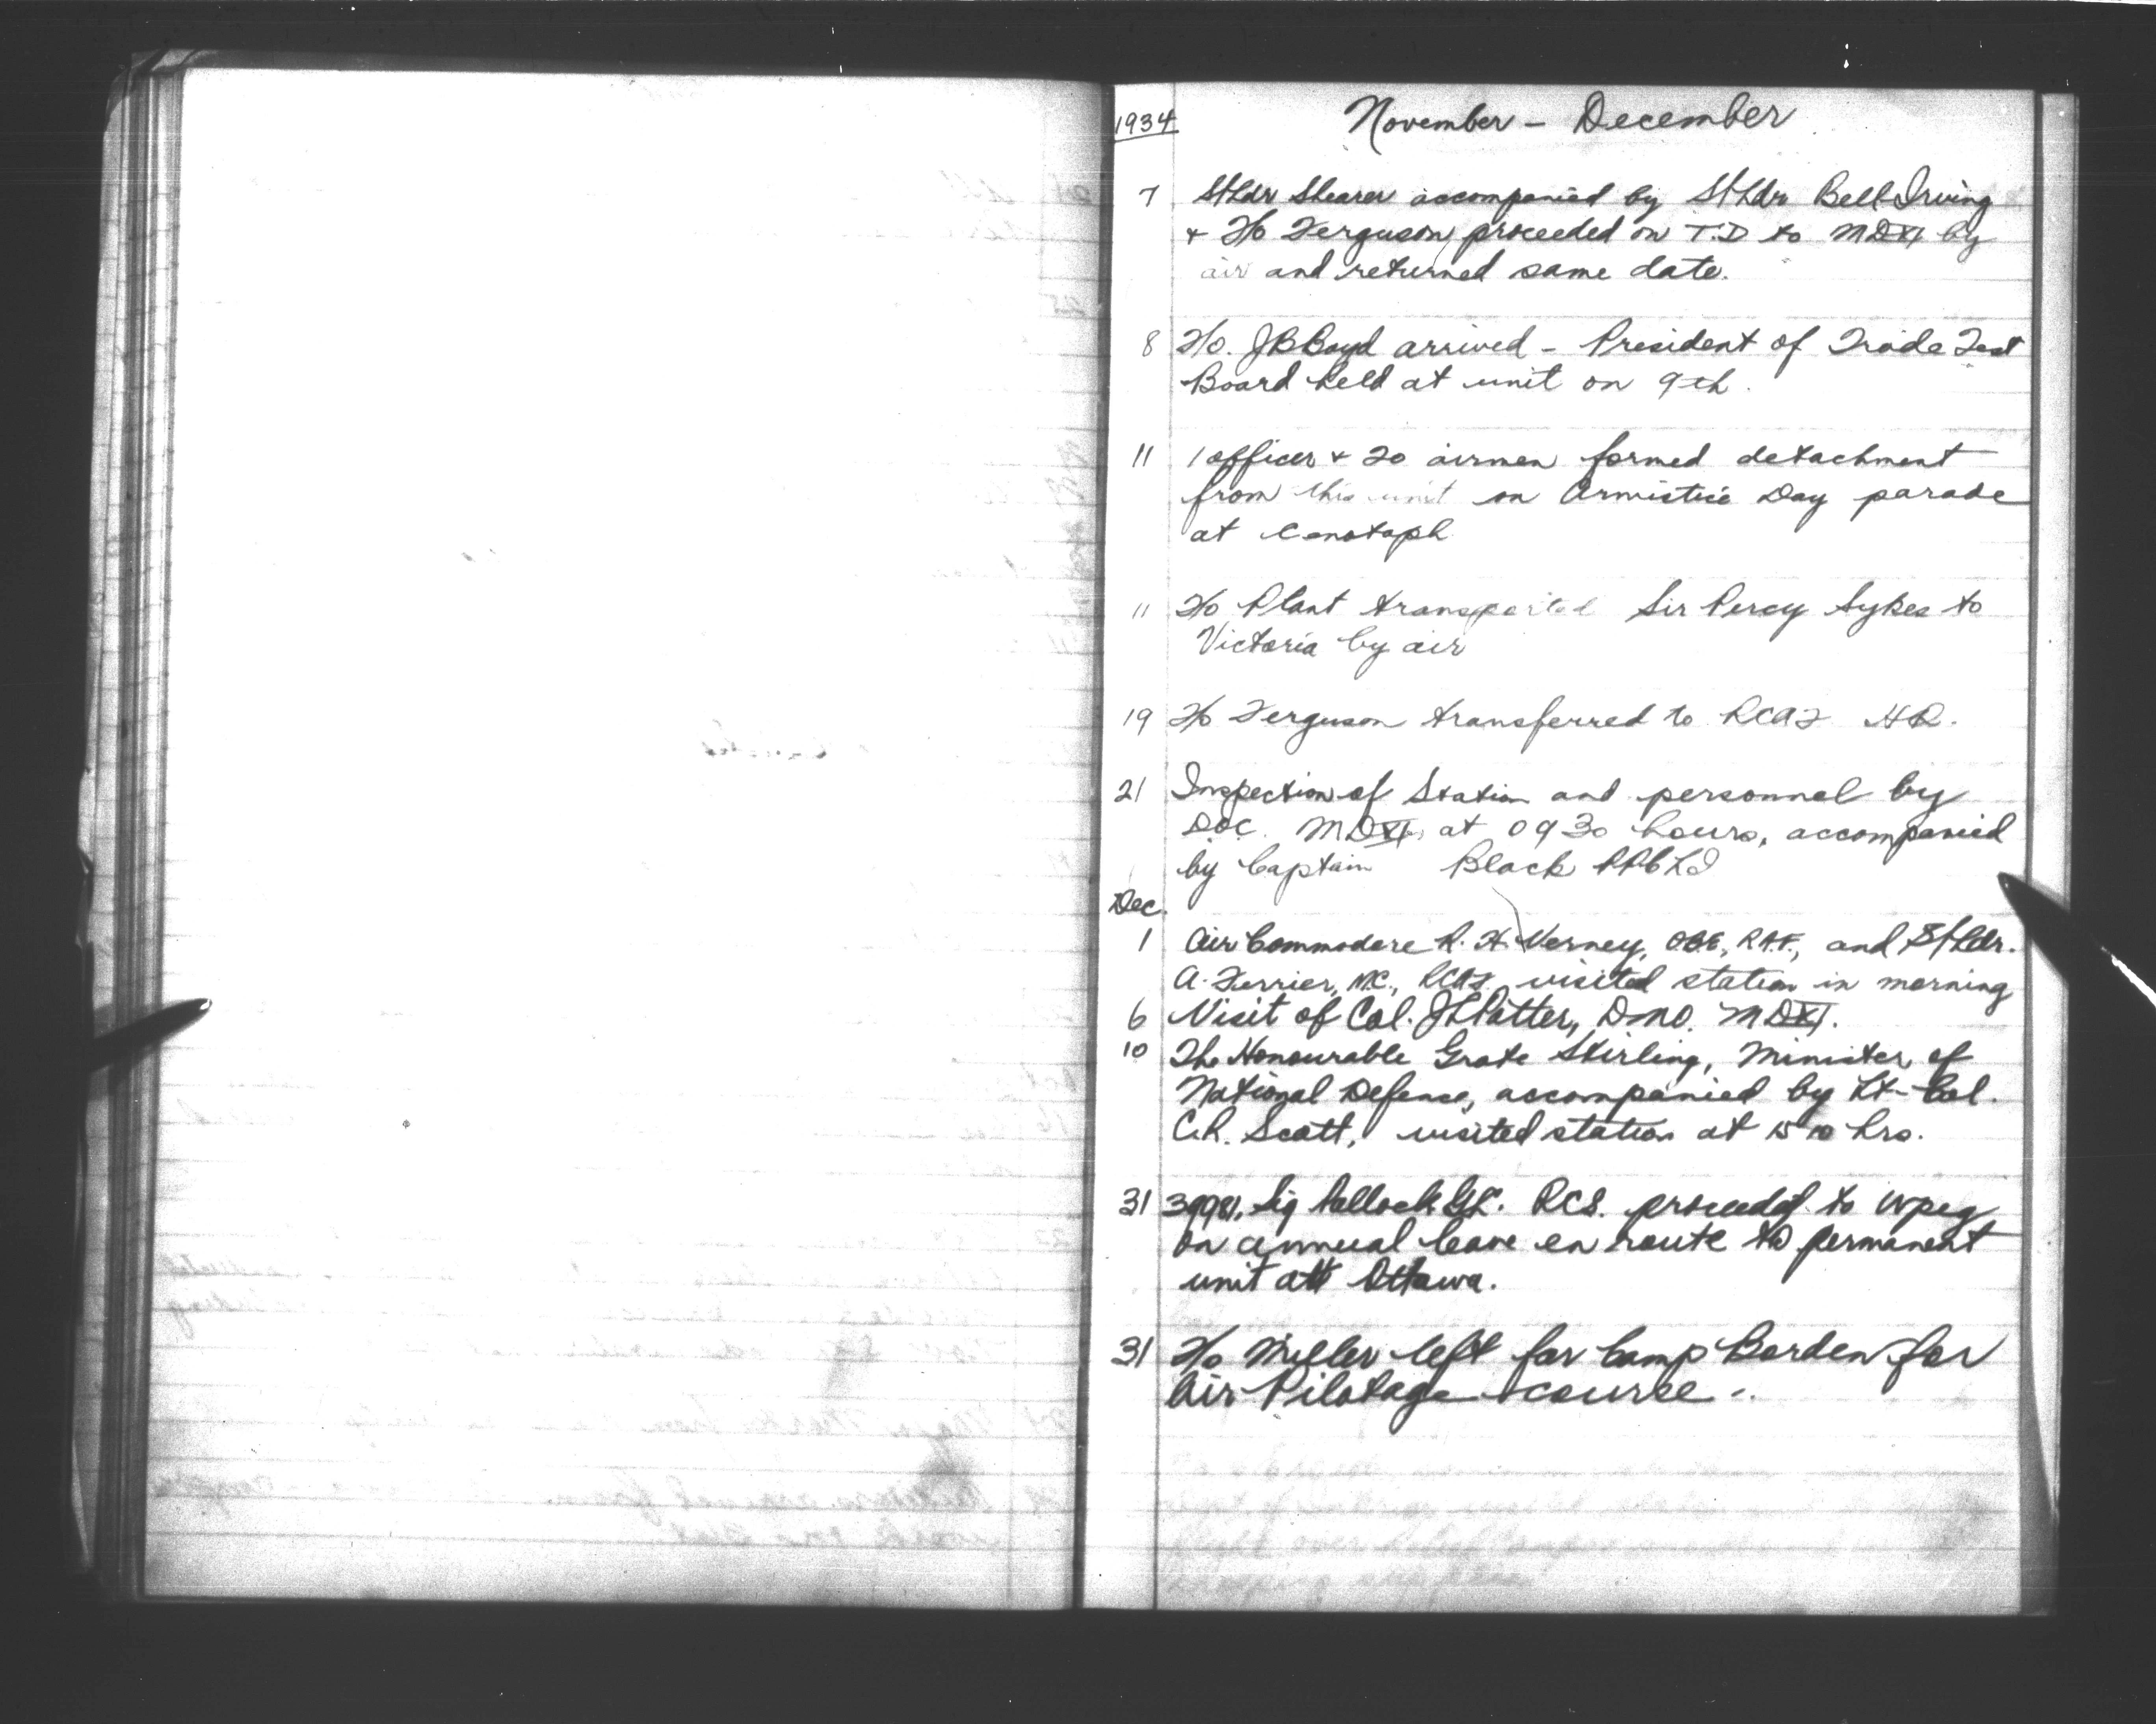 1934 November – December
7 S/Ldr Shearer accompanied by S/Ldr Bell-Irving
+ F/O Ferguson proceeded on T.D to MDXI by
air and returned same date.
8 F/O. J B Boyd arrived – President of Trade Test
Board held at unit on 9th.
11 1 officer + 20 airmen formed detachment
from this unit on Armistice Day parade
at Cenotaph
11 F/O Plant transported Sir Percy Sykes to
Victoria by air
19 F/O Ferguson transferred to RCAF HQ.
21 Inspection of Station and personnel by
DOC. MDXI, at 0930 hours, accompanied
by Captain Black PPCLI
Dec.
1 Air Commodore R. H. Verney, OBE, RAF, and S/Ldr.
A. Ferrier, MC., RCAF visited station in morning
6 Visit of Col. J L Potter, DMO. MDXI.
10 The Honourable Grote Stirling, Minister of
National Defence, accompanied by Lt-Col.
C.R. Scott, visited station at 1510 hrs.
31 Sig Pollock RCS. proceeded to Wpeg
on annual leave en route to permanent
unit at Ottawa.
31 F/O Miller left for Camp Borden for
Air Pilotage course.